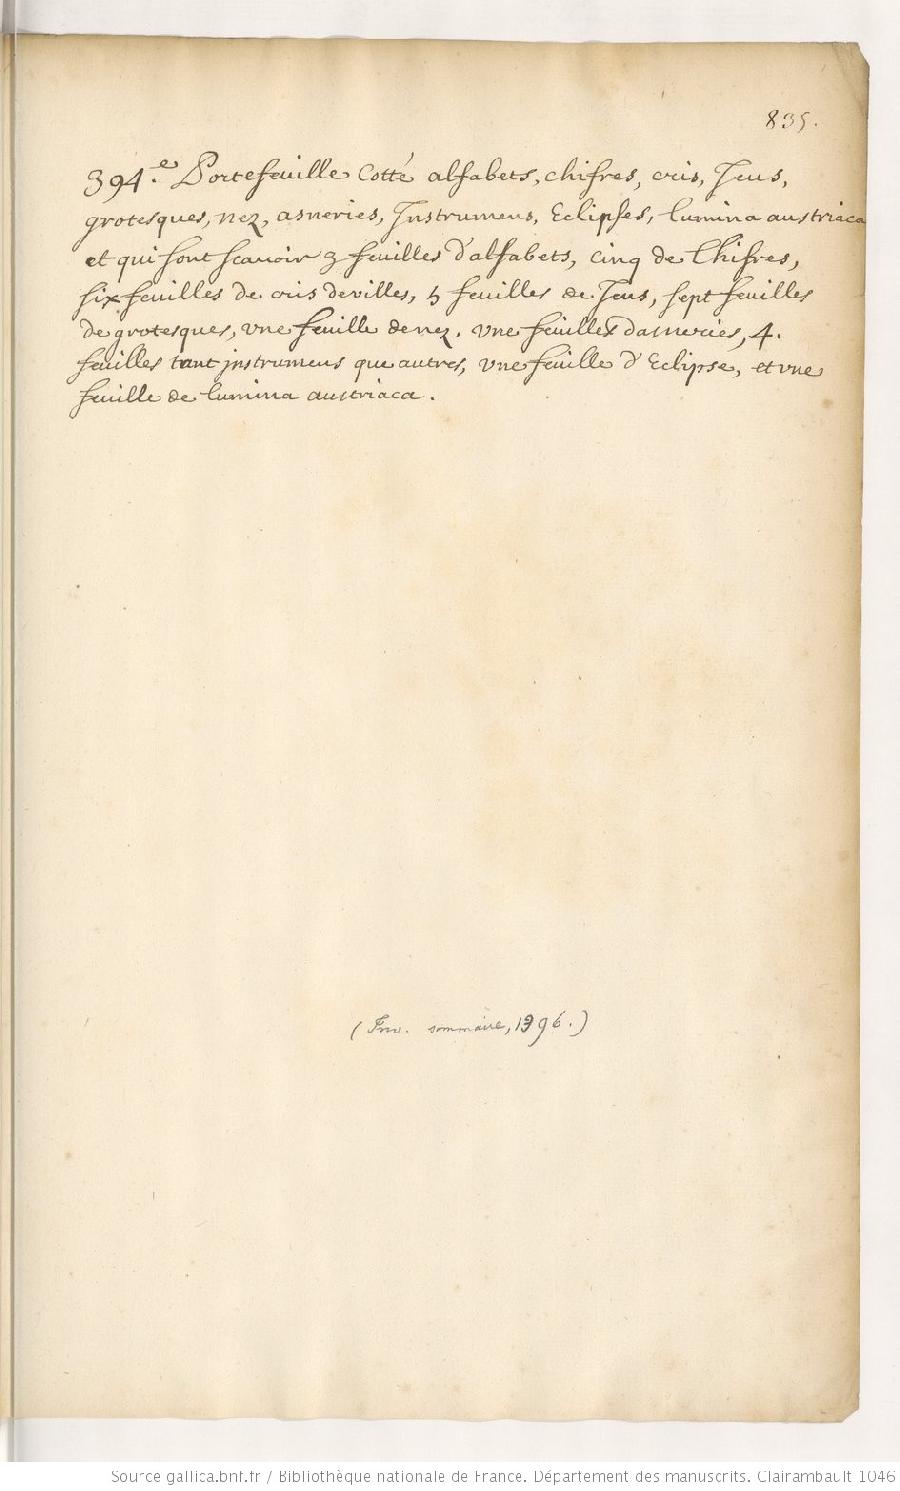 835.
394.e Portefeuille Cotté alfabets, chifres, cris, Jeus,
grotesques, nez, asneries, Jnstrumens, Eclipses, lumina austriaca
et qui sont scauoir 3 feuilles d'alfabets, cinq de Chifres,
six feuilles de cris de villes, 5 feuilles de Jeus, sept feuilles
de grotesques, vne feuille de nez. vne feuilles dasneries, 4.
feuilles tant jnstrumens que autres, vne feuille d'Eclipse, et vne
feuille de lumina austriaca.
(Inv. sommaire, 1396.)
Source gallica.bnf.fr / Bibliothèque nationale de France. Département des manuscrits. Clairambault 1046